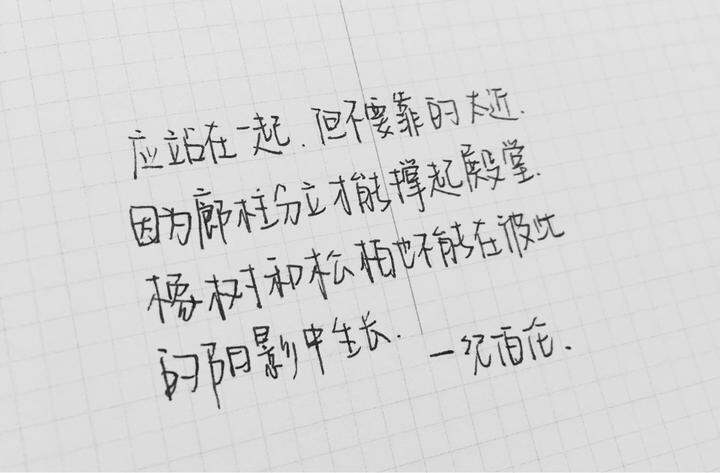 应站在一起.但不要靠的太近.
因为廊柱分立才能撑起殿堂.
橡树和松柏也不能在彼此
的阴影中生长. 一纪伯伦.